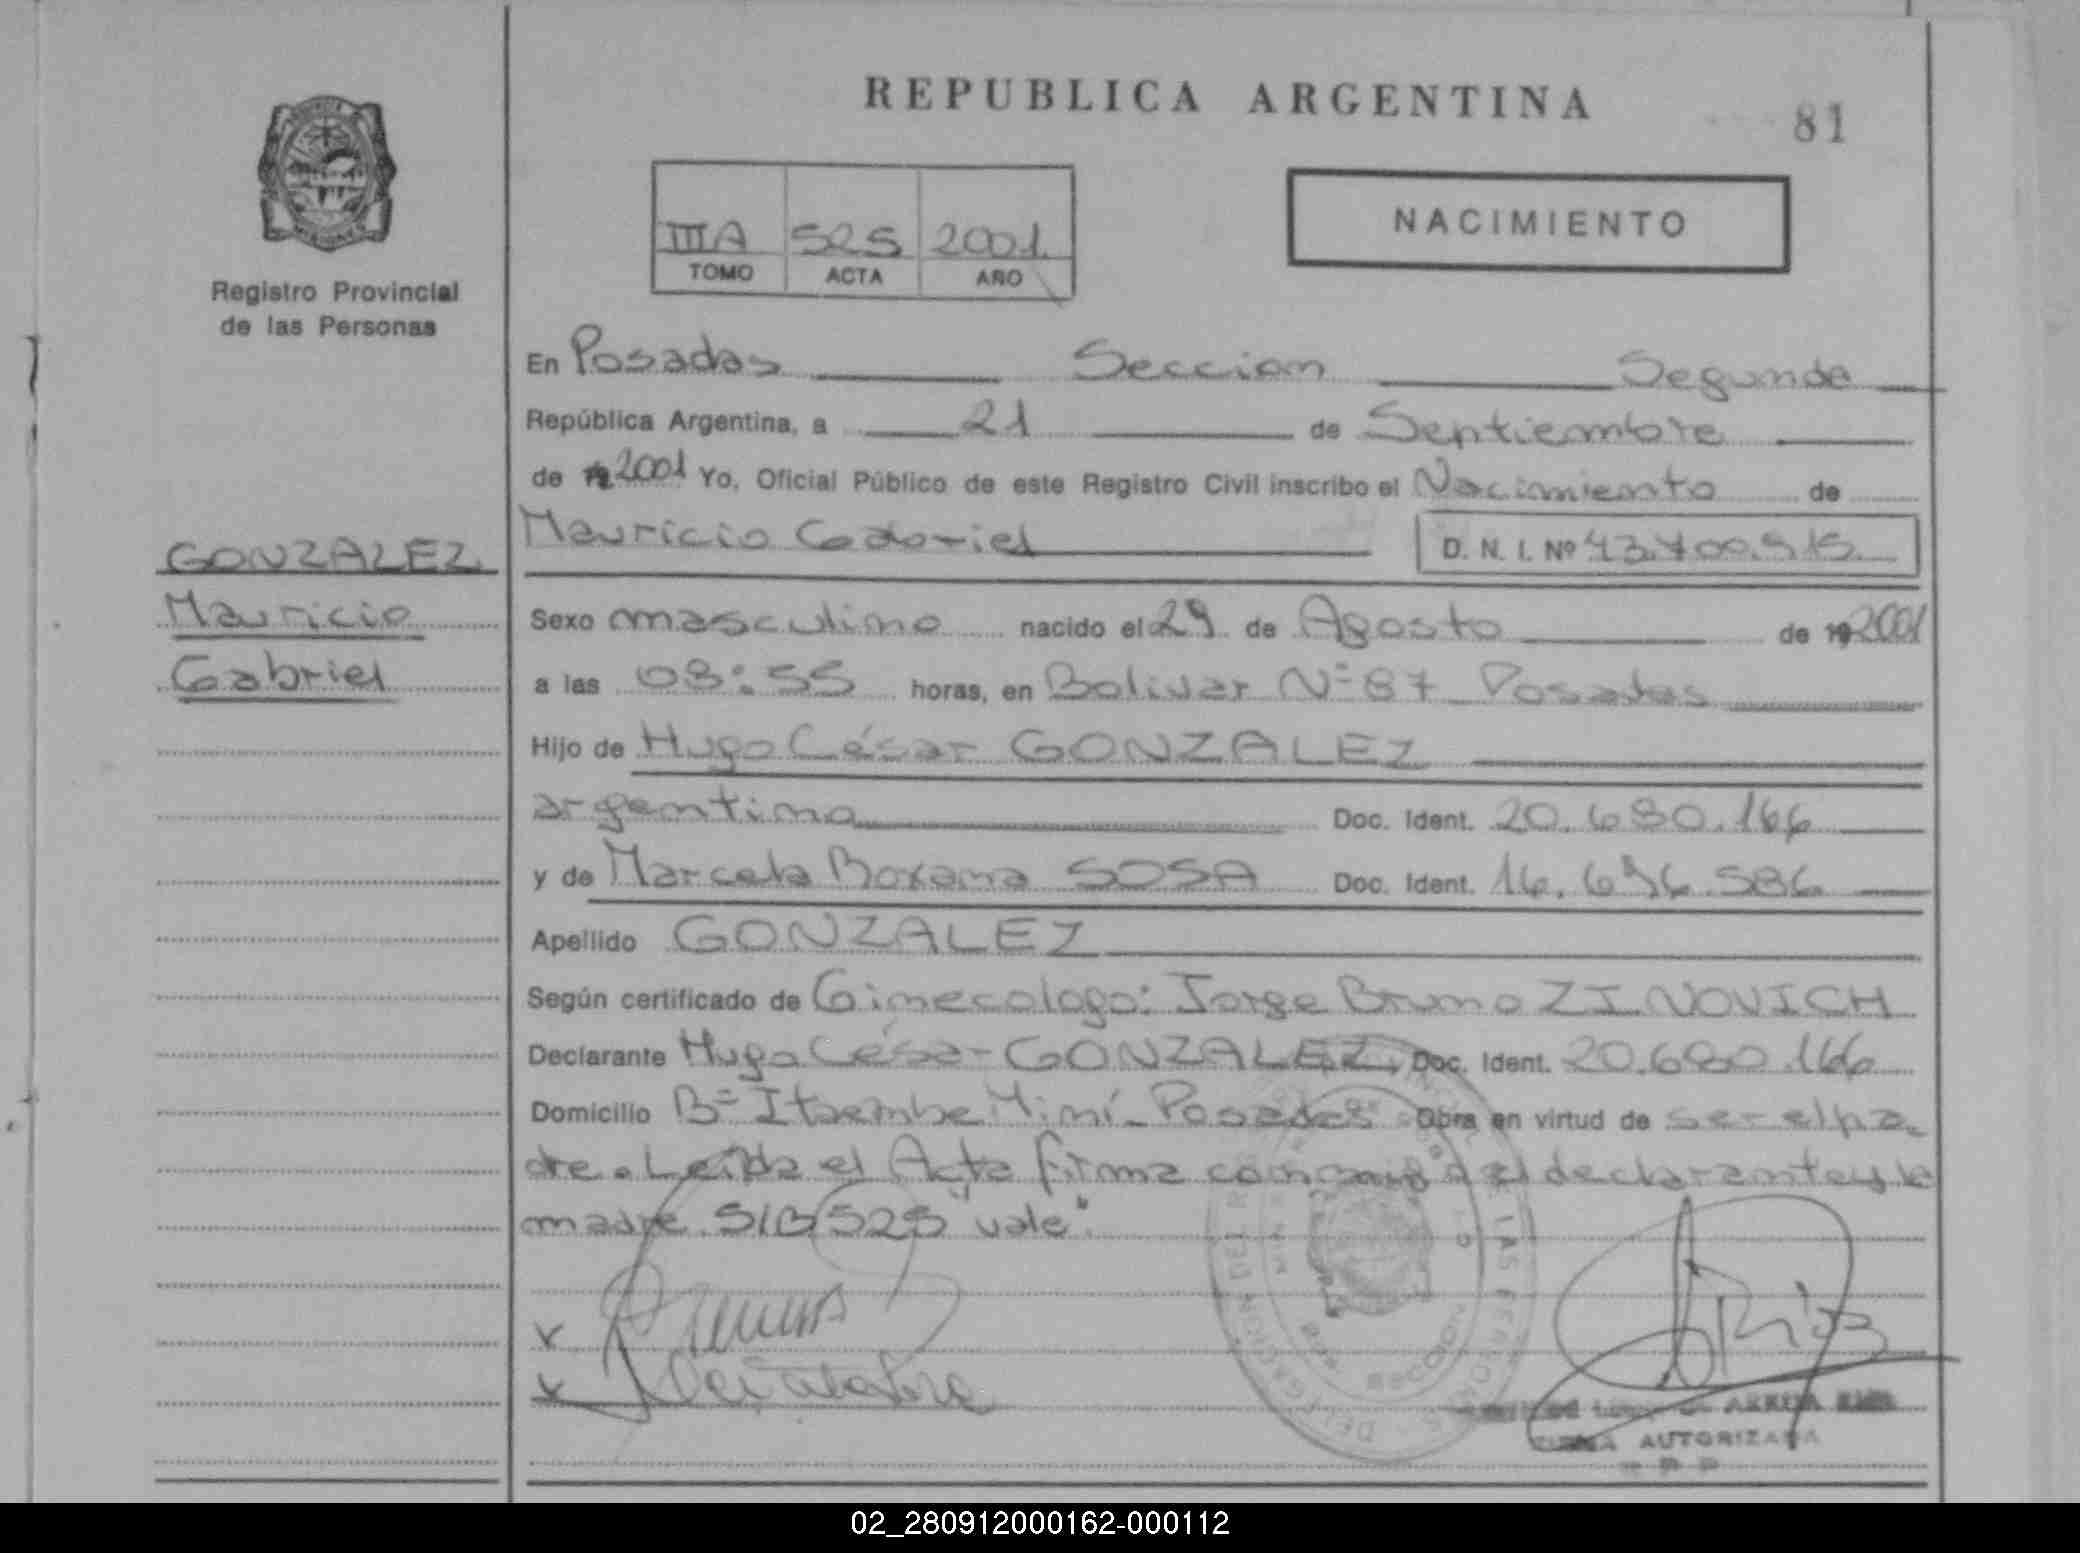 REPUBLICA ARGENTINA
81
III A 525 2001.
TOMO ACTA AÑO
NACIMIENTO
Registro Provincial
de las Personas
GONZALEZ
Mauricio
Gabriel
En Posadas Seccion Segunda
República Argentina, a 21 de Septiembre
de 2001 Yo, Oficial Público de este Registro Civil inscribo el Nacimiento de
Mauricio Gabriel D. N. I. Nº
Sexo masculino nacido el 29 de Agosto de 2001
a las 08:55 horas, en Bolivar Nº 87 Posadas
Hijo de Hugo César GONZALEZ
argentino Doc. Ident. 20.680.166
y de Marcela Roxana SOSA Doc. Ident.
Apellido GONZALEZ
Según certificado de Ginecologo: Jorge Bruno ZINOVICH
Declarante Hugo César GONZALEZ Doc. Ident. 20.680.166
Domicilio Bº Itaembe Miní - Posadas Obra en virtud de ser el pa-
dre. Leída el Acta firma conmigo el declarante y la
madre. S/B 525 "vale".
FIRMA AUTORIZADA
02_280912000162-000112